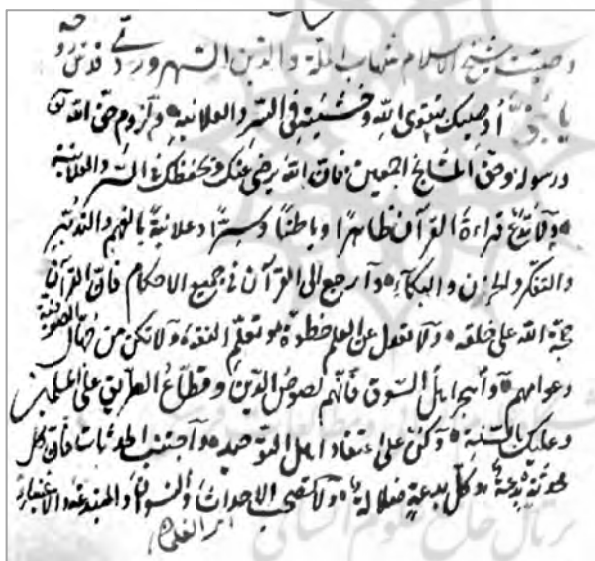 وصیت شیخ الاسلام شهاب الملة والدین السهروردی قدس روحه
یا بنی أوصیک بتقوی الله وخشیته فی السر والعلانیة ولزوم حق الله
ورسوله وحق المشایخ اجمعین فان الله یرضی عنک ویحفظک فی السر والعلانیة
ولا تدع قراءة القرآن ظاهرًا وباطنًا وسرًا وعلانیةً بالفهم والتدبیر
والتفکر والحزن والبکآء وآرجع الی القرآن فی جمیع الاحکام فان القرآن
حجة الله علی خلقه ولا تعدل عن العلم خطوة وتعلم الفقه ولا تکن من جهال الصوفیة
وعوامهم وأهجر اهل السوق فأنهم لصوص الدین وقطاع الطریق علی المسلمین
وعلیک بالسنة وکن علی اعتقاد اهل التوحید وآجتنب المحدثات فان کل
محدثة بدعة وکل بدعة ضلالة ولا تصحب الاحداث والنسوان والمبتدعة والاغنیاء
پرتال جامع علوم انسانی